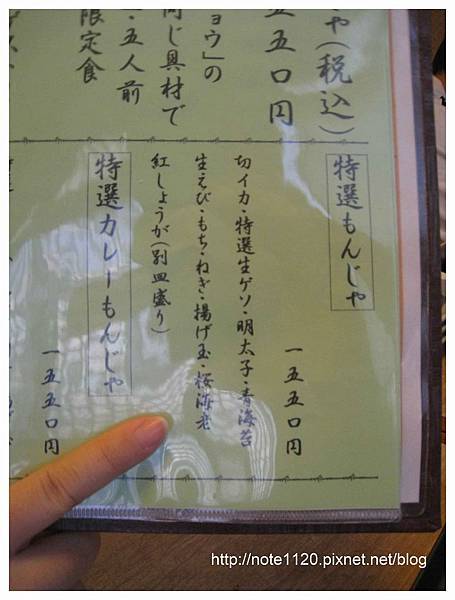 や(税込)
五五〇円
ョウ」の
同じ具材で
・五人前
限定食
特選もんじゃ
一五五〇円
切イカ・特選生ゲソ・明太子・青海苔
生えび・もち・ねぎ・揚げ玉・桜海老
紅しょうが(別皿盛り)
特選カレーもんじゃ
一五五〇円
http://note1120.pixnet.net/blog